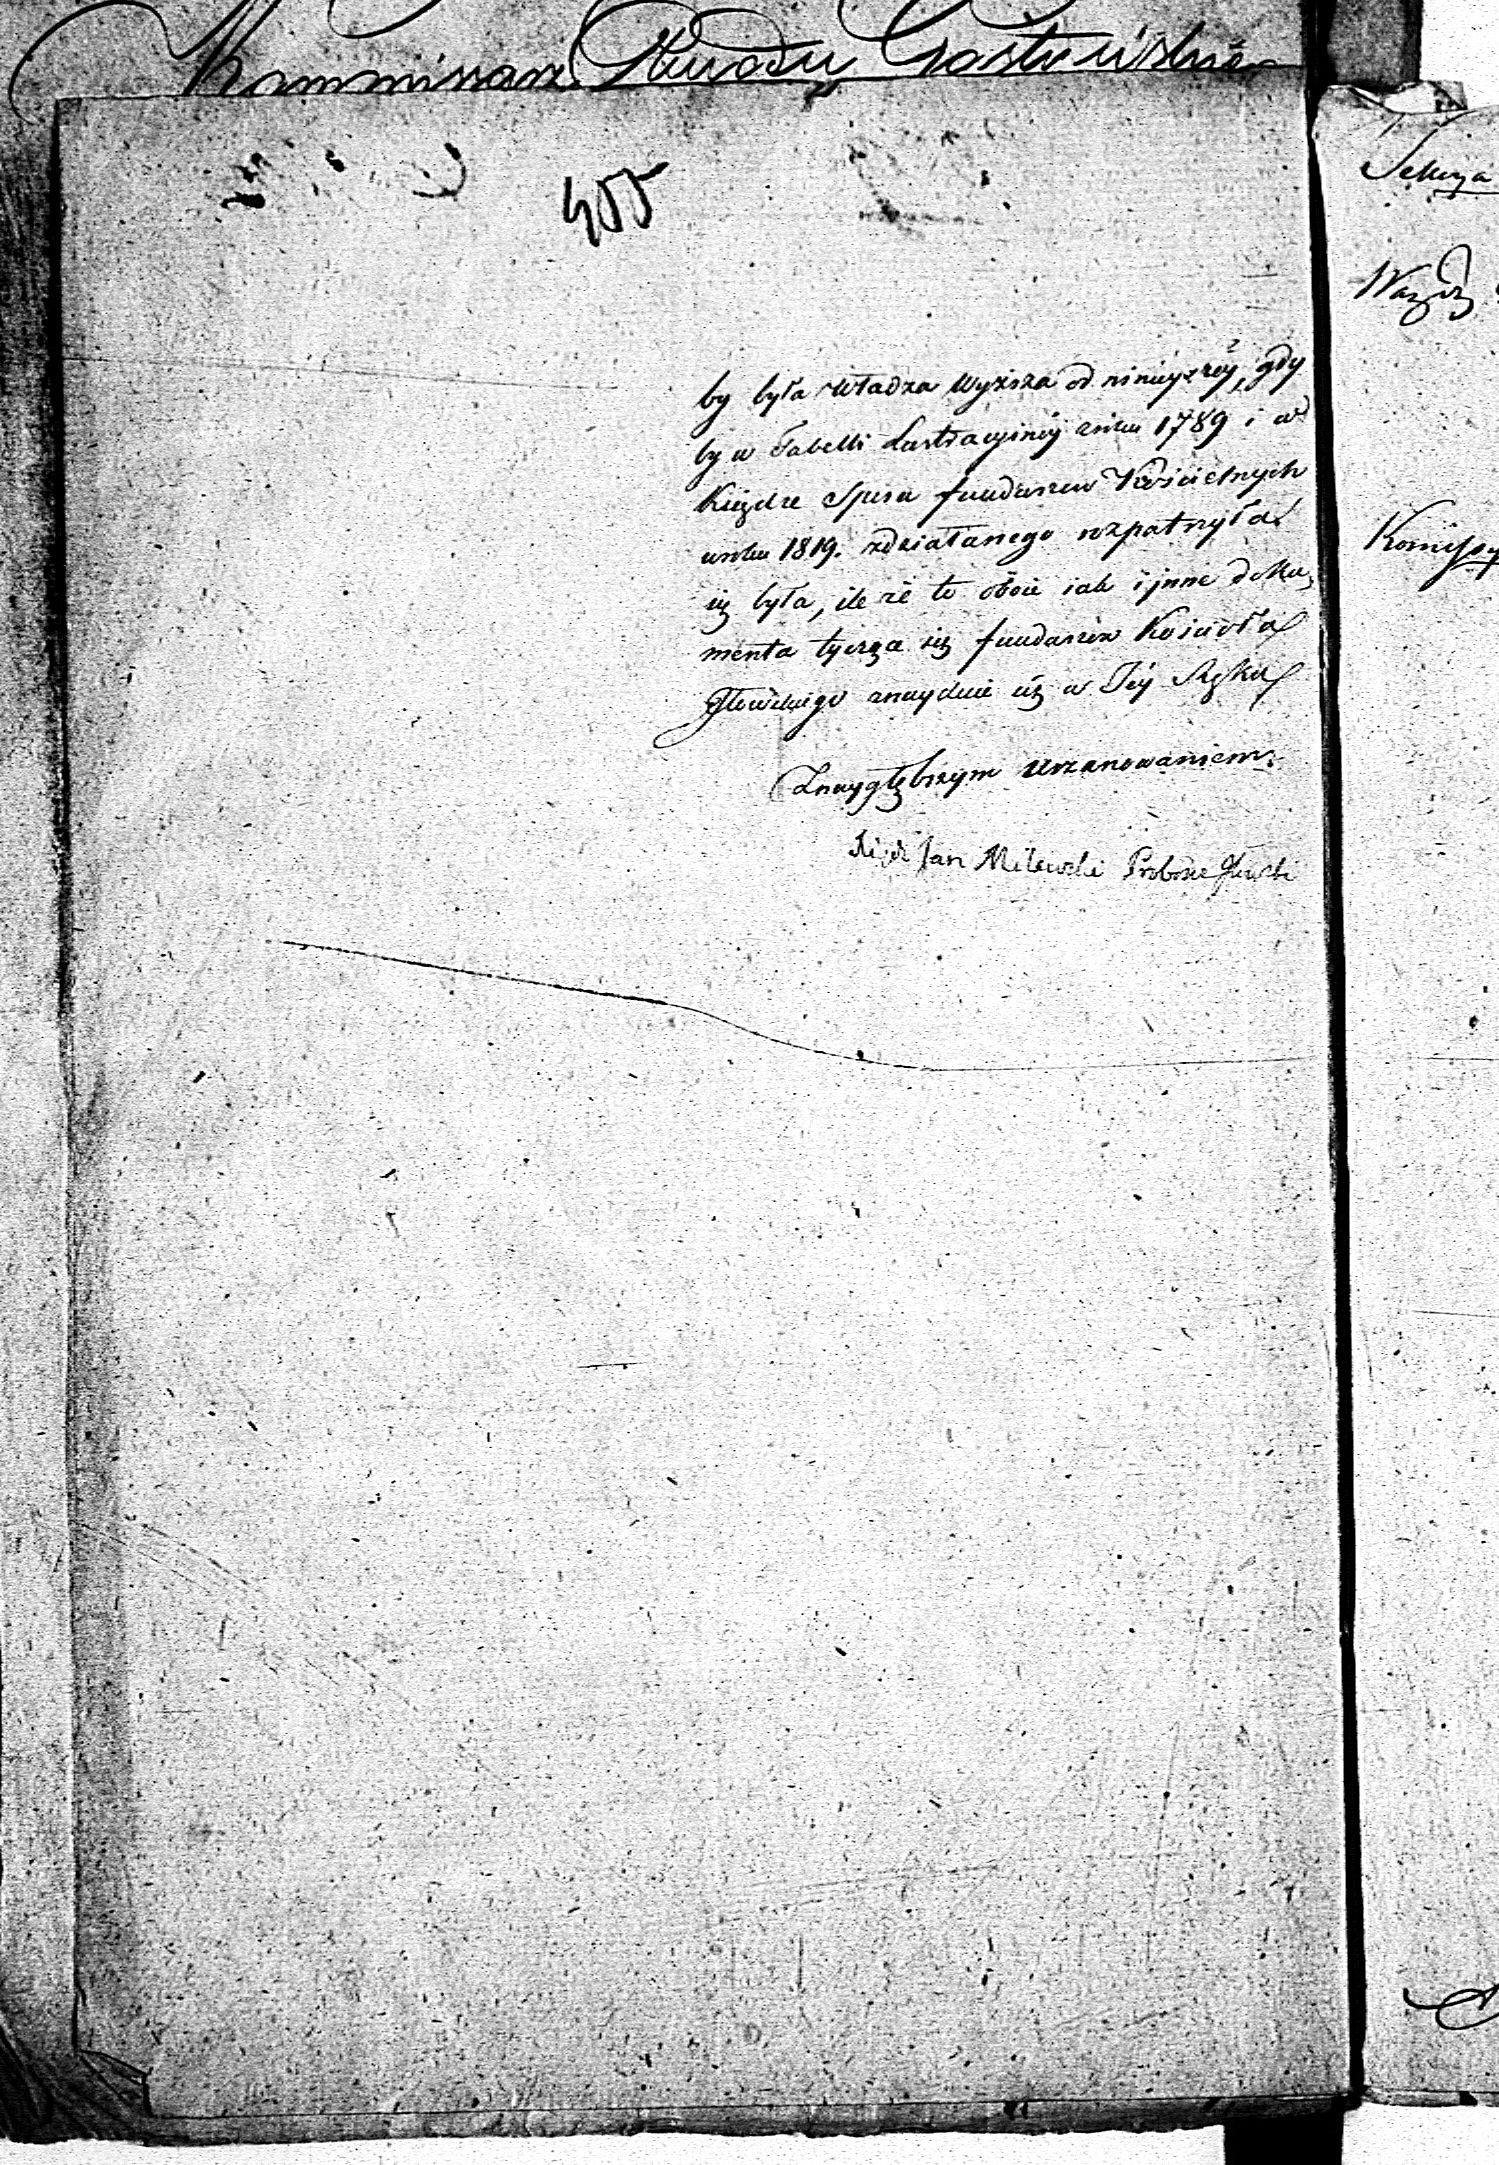 Kommissarz Obwodu Gostyńskie
455
by była Władza Wyższa od ninieyszéy, gdy
by w Tabelli Lustracyinéy z roku 1789 i w
Księdze Spisu funduszow Kościelnych
w roku 1819. zdziałanego rozpatrzyła
się była, ile że te oboie iak i jnne doku„
menta tyczące się funduszów Kościoła
znayduie się w Jéy Ręku
Z naygłębszym uszanowaniem
Xiądz Jan Milewski Proboszcz
Sekcya
Kommissy